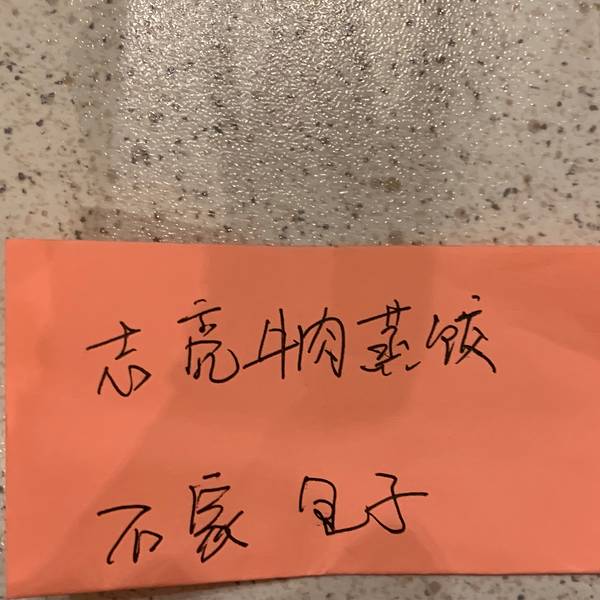 志亮牛肉蒸饺
石家包子